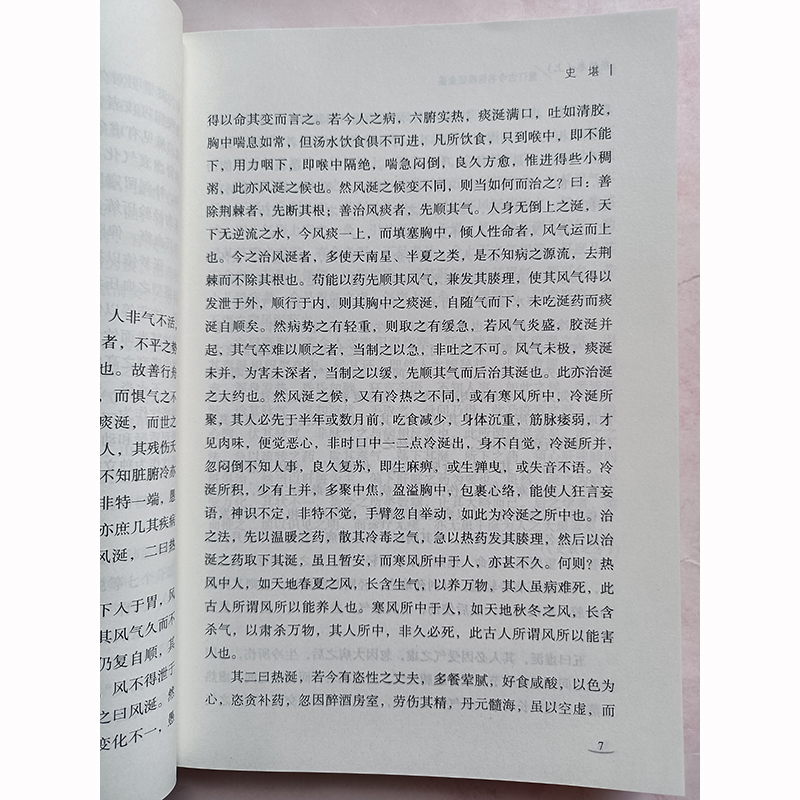 人非气不活,
者,不平之势
也。故善行舟
而惧气之不
痰涎,而世之
人,其残伤天
不知脏腑冷亦
非特一端,愚
亦庶几其疾病
风涎,二曰热
下入于胃,风
其风气久而不
仍复自顺,其
风不得泄于
之曰风涎。然
变化不一,愚
史堪
得以命其变而言之。若今人之病,六腑实热,痰涎满口,吐如清胶,
胸中喘息如常,但汤水饮食俱不可进,凡所饮食,只到喉中,即不能
下,用力咽下,即喉中隔绝,喘急闷倒,良久方愈,惟进得些小稠
粥,此亦风涎之候也。然风涎之候变不同,则当如何而治之?曰:善
除荆棘者,先断其根;善治风痰者,先顺其气。人身无倒上之涎,天
下无逆流之水,今风痰一上,而填塞胸中,倾人性命者,风气运而上
也。今之治风涎者,多使天南星、半夏之类,是不知病之源流,去荆
棘而不除其根也。苟能以药先顺其风气,兼发其腠理,使其风气得以
发泄于外,顺行于内,则其胸中之痰涎,自随气而下,未吃涎药而痰
涎自顺矣。然病势之有轻重,则取之有缓急,若风气炎盛,胶涎并
起,其气卒难以顺之者,当制之以急,非吐之不可。风气未极,痰涎
未并,为害未深者,当制之以缓,先顺其气而后治其涎也。此亦治涎
之大约也。然风涎之候,又有冷热之不同,或有寒风所中,冷涎所
聚,其人必先于半年或数月前,吃食减少,身体沉重,筋脉痿弱,才
见肉味,便觉恶心,非时口中一二点冷涎出,身不自觉,冷涎所并,
忽闷倒不知人事,良久复苏,即生麻痹,或生亸曳,或失音不语。冷
涎所积,少有上并,多聚中焦,盈溢胸中,包裹心络,能使人狂言妄
语,神识不定,非特不觉,手臂忽自举动,如此为冷涎之所中也。治
之法,先以温暖之药,散其冷毒之气,急以热药发其腠理,然后以治
涎之药取下其涎,虽且暂安,而寒风所中于人,亦甚不久。何则?热
风中人,如天地春夏之风,长含生气,以养万物,其人虽病难死,此
古人所谓风所以能养人也。寒风所中于人,如天地秋冬之风,长含
杀气,以肃杀万物,其人所中,非久必死,此古人所谓风所以能害
人也。
其二曰热涎,若今有恣性之丈夫,多餐荤腻,好食咸酸,以色为
心,恣贪补药,忽因醉酒房室,劳伤其精,丹元髓海,虽以空虚,而
7